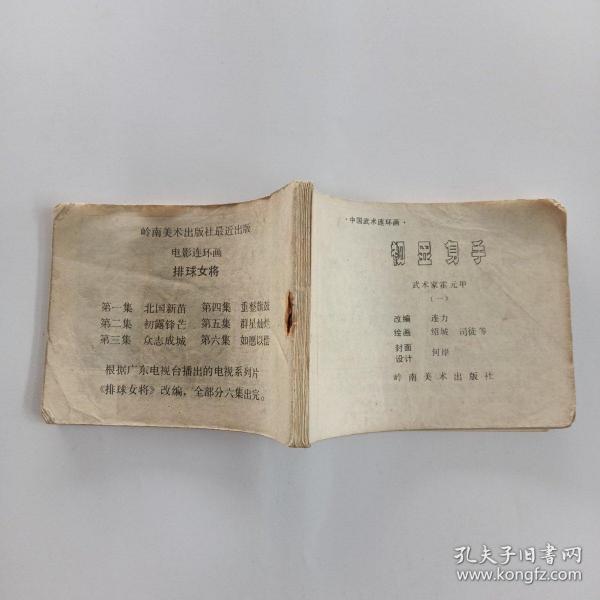 岭南美术出版社最近出版
电影连环画
排球女将
第一集 北国新苗 第四集 重整旗鼓
第二集 初露锋芒 第五集 群星灿烂
第三集 众志成城 第六集 如愿以偿
根据广东电视台播出的电视系列片
《排球女将》改编,全部分六集出完。
·中国武术连环画·
初显身手
武术家霍元甲
(一)
改编 连力
绘画 绍城 司徒等
封面
设计 何岸
岭南美术出版社
孔夫子旧书网
www.kongfz.com